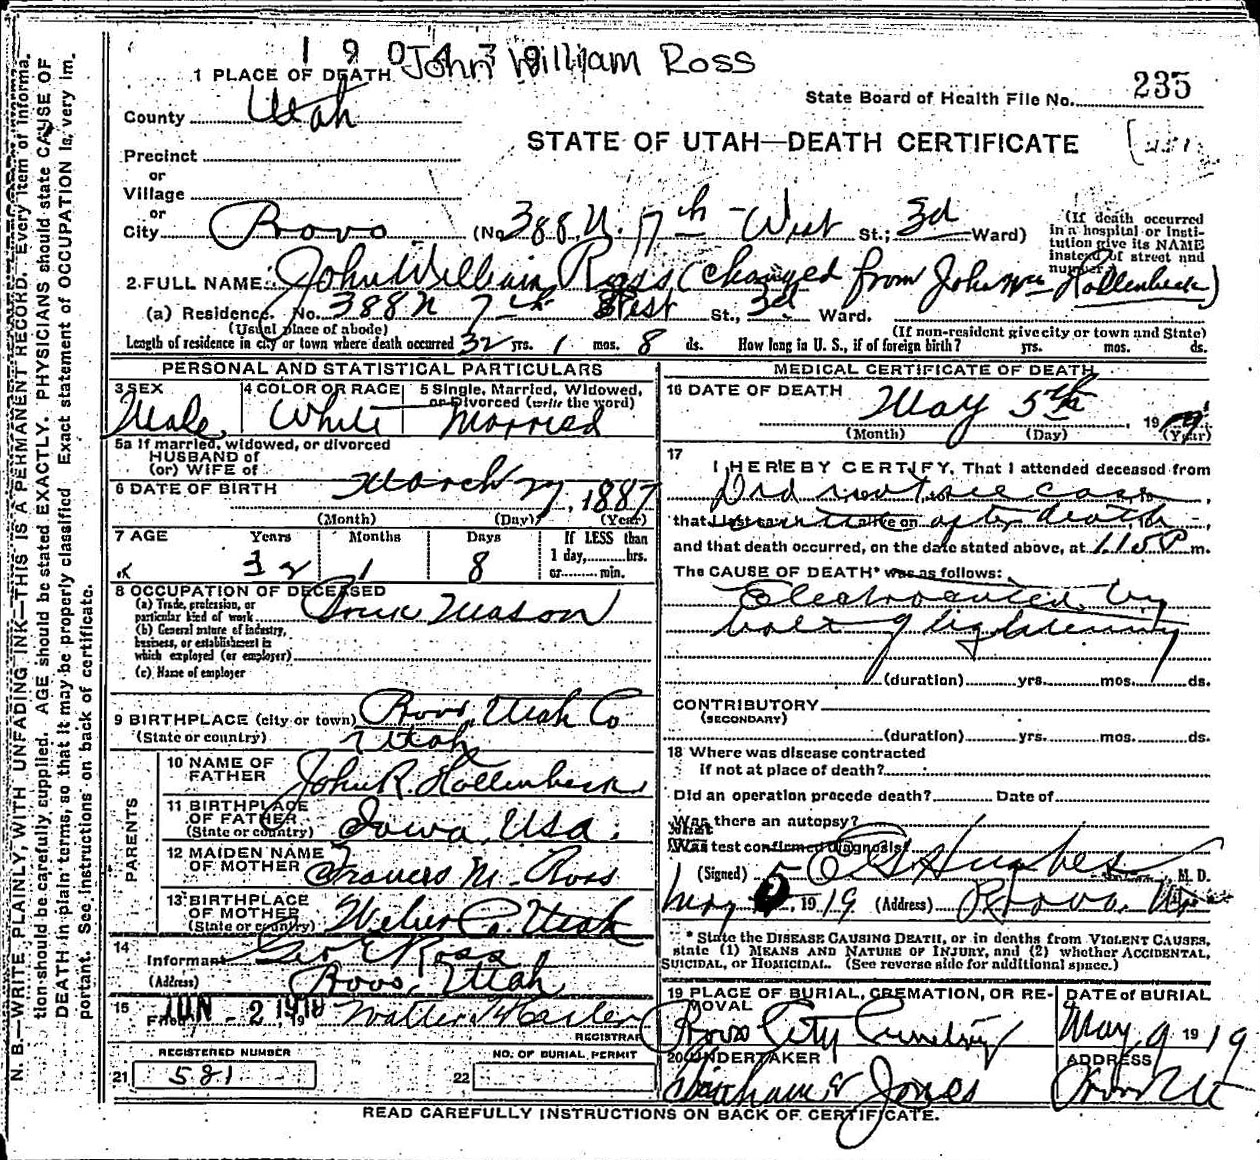 John William Ross
1 PLACE OF DEATH
235
State Board of Health File No.
County Utah
STATE OF UTAH—DEATH CERTIFICATE
Precinct
or
Village
or
City Provo (No. 388 N. 7th West St.; 3d Ward)
(If death occurred in a hospital or institution give its NAME instead of street and number)
2. FULL NAME John William Ross (changed from John Wm Hollenbeck)
(a) Residence. No. 388 N 7th West St., 3d Ward.
(Usual place of abode) (If non-resident give city or town and State)
Length of residence in city or town where death occurred 32 yrs. 1 mos. 8 ds. How long in U. S., if of foreign birth? yrs. mos. ds.
PERSONAL AND STATISTICAL PARTICULARS
3 SEX Male 4 COLOR OR RACE White 5 Single, Married, Widowed, or Divorced (write the word) Married
5a If married, widowed, or divorced
HUSBAND of
(or) WIFE of
6 DATE OF BIRTH March 27, 1887
(Month) (Day) (Year)
7 AGE Years Months Days If LESS than
32 1 8 1 day,......hrs.
or......min.
8 OCCUPATION OF DECEASED
(a) Trade, profession, or particular kind of work Brick Mason
(b) General nature of industry, business, or establishment in which employed (or employer)
(c) Name of employer
9 BIRTHPLACE (city or town) Provo, Utah Co
(State or country) Utah
PARENTS
10 NAME OF FATHER John R. Hollenbeck
11 BIRTHPLACE OF FATHER (State or country) Iowa, USA.
12 MAIDEN NAME OF MOTHER Frances M. Ross
13 BIRTHPLACE OF MOTHER (State or country) Weber Co. Utah
14 Informant Geo E Ross
(Address) Provo, Utah
15 Filed JUN - 2 1919 Walter
REGISTRAR
REGISTERED NUMBER NO. OF BURIAL PERMIT
21 581 22
MEDICAL CERTIFICATE OF DEATH
16 DATE OF DEATH May 5th, 1919
(Month) (Day) (Year)
17 I HEREBY CERTIFY, That I attended deceased from
Did not see case
that I last saw alive on after death
and that death occurred, on the date stated above, at 1.15 P m.
The CAUSE OF DEATH* was as follows:
Electrocuted by
bolt of lightening
(duration) yrs. mos. ds.
CONTRIBUTORY
(SECONDARY)
(duration) yrs. mos. ds.
18 Where was disease contracted
if not at place of death?
Did an operation precede death? Date of
Was there an autopsy?
What test confirmed diagnosis?
(Signed) Hughes, M. D.
May 5, 1919 (Address) Provo, Ut
* State the DISEASE CAUSING DEATH, or in deaths from VIOLENT CAUSES,
state (1) MEANS AND NATURE OF INJURY, and (2) whether ACCIDENTAL,
SUICIDAL, or HOMICIDAL. (See reverse side for additional space.)
19 PLACE OF BURIAL, CREMATION, OR REMOVAL DATE of BURIAL
Provo City May 9 1919
20 UNDERTAKER ADDRESS
Jones Provo Ut
READ CAREFULLY INSTRUCTIONS ON BACK OF CERTIFICATE.
N. B.—WRITE PLAINLY, WITH UNFADING INK—THIS IS A PERMANENT RECORD. Every item of information should be carefully supplied. AGE should be stated EXACTLY. PHYSICIANS should state CAUSE OF DEATH in plain terms, so that it may be properly classified. Exact statement of OCCUPATION is very important. See instructions on back of certificate.